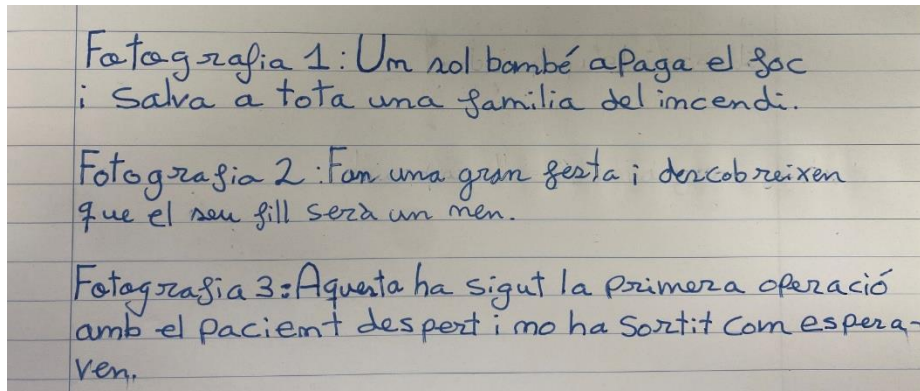 Fotografia 1: Un sol bombé apaga el foc
i salva a tota una familia del incendi.
Fotografia 2: Fan una gran festa i descobreixen
que el seu fill serà un nen.
Fotografia 3: Aquesta ha sigut la primera operació
amb el pacient despert i no ha sortit com espera-
ven.